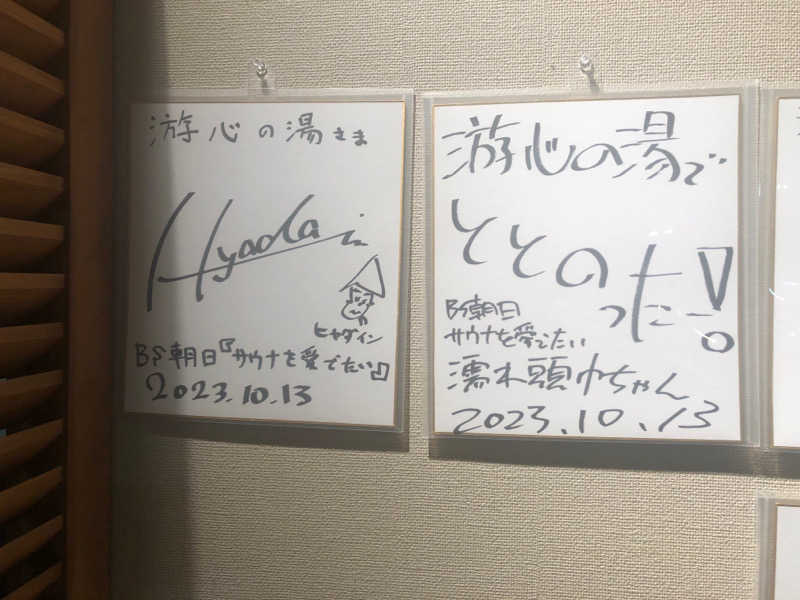 游心の湯さま
Hyadain
ヒャダイン
BS朝日『サウナを愛でたい』
2023.10.13
游心の湯で
ととのったー!
BS朝日
サウナを愛でたい
濡れ頭巾ちゃん
2023.10.13